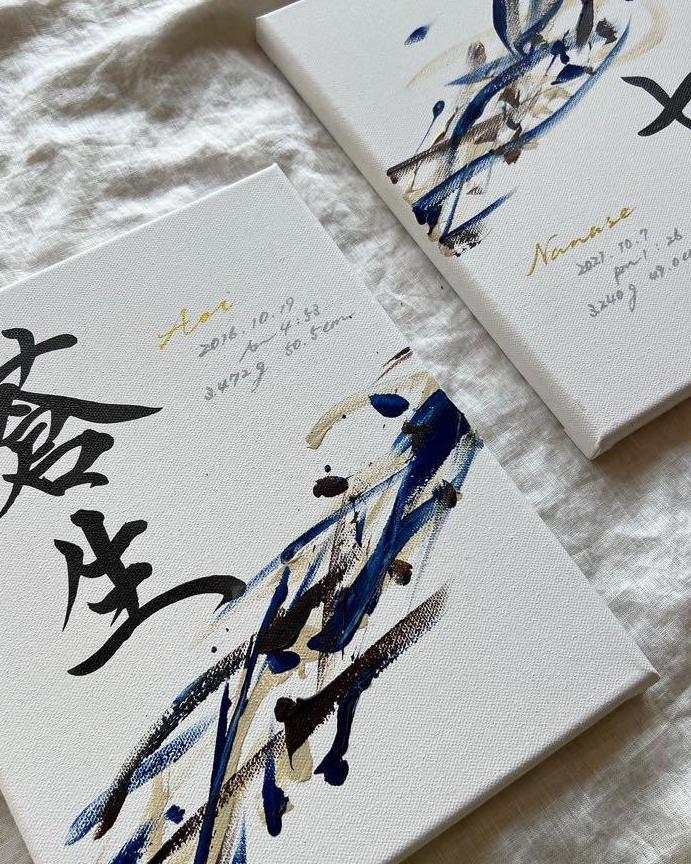 蒼
生
Aoi
2016.10.19
am 4:53
3.472g 50.5cm
Nanase
2021.10.7
pm 1:26
3.240g 49.0c